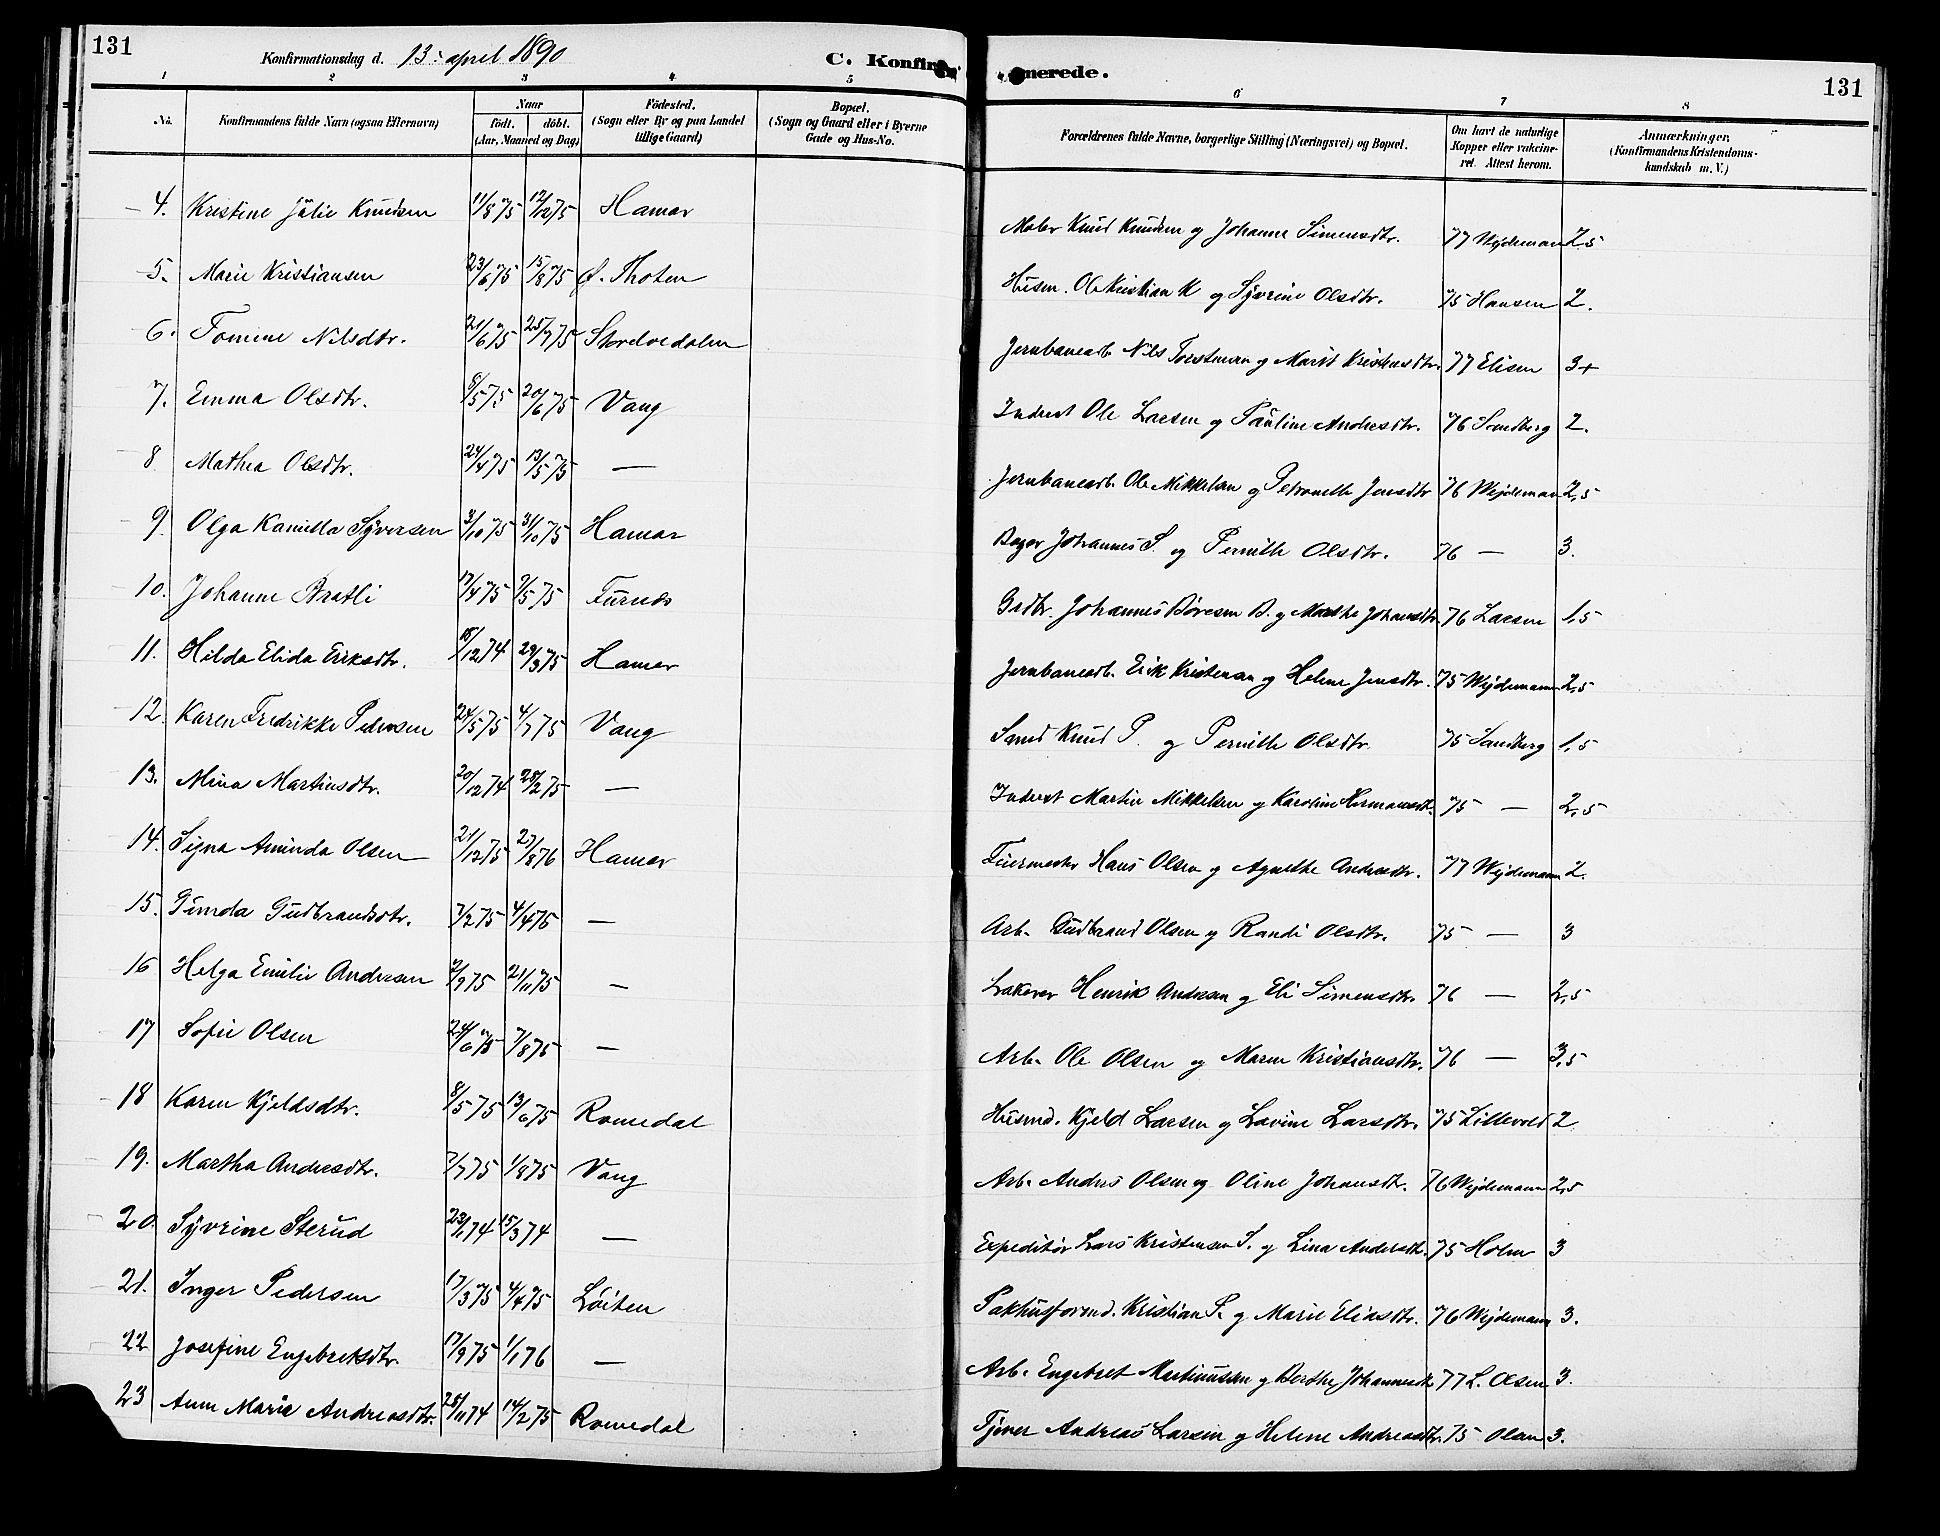 131
Konfirmationsdag d. 13. april 1890
C. Konfir
merede.
131
1 2 3 4 5 6 7 8
No. Konfirmandens fulde Navn (ogsaa Efternavn) Naar födt. döbt. (Aar, Maaned og Dag) Födested. (Sogn eller By og paa Landet tillige Gaard) Bopæl. (Sogn og Gaard eller i Byerne Gade og Hus-No. Forældrenes fulde Navne, borgerlige Stilling (Næringsvei) og Bopæl. Om havt de naturlige Kopper eller vakcineret. Attest herom. Anmærkninger, (Konfirmandens Kristendomskundskab m. V.)
4. Kristine Julie Knudsen 11/8 75 12/12 75 Hamar Maler Knud Knudsen og Johanne Simensdtr. 77 Wejdemann 2.5
5. Marie Kristiansen 23/6 75 15/8 75 Ø. Thoten Husm. Ole Kristian K og Syverine Olsdtr. 75 Hansen 2.
6. Tomine Nilsdtr. 21/6 75 25/7 75 Storelvedalen Jernbanearb. Nils Torstensen og Marit Kristensdtr. 77 Elisen 3+
7. Emma Olsdtr. 8/5 75 20/6 75 Vang Inderst Ole Larsen og Pauline Andersdtr. 76 Sandberg 2.
8. Mathea Olsdtr. 24/4 75 13/5 75 — Jernbanearb. Ole Mikkelsen og Petronelle Jensdtr 76 Wejdemann 2,5
9. Olga Kamilla Syversen 3/10 75 31/10 75 Hamar Bager Johannes S. og Pernille Olsdtr. 76 — 3.
10. Johanne Bratli 17/4 75 9/5 75 Furnes Grdbr. Johannes Børesen B. og Marthe Johansdtr. 76 Larsen 1,5
11. Hilda Elida Eriksdtr. 18/12 74 29/3 75 Hamar Jernbanearb. Erik Kristensen og Helene Jensdtr. 75 Wejdemann 2,5
12. Karen Fredrikke Pedersen 24/5 75 4/7 75 Vang Smed Knud P. og Pernille Olsdtr. 75 Sandberg 1,5
13. Mina Martinsdtr. 20/12 74 28/2 75 — Inderst Martin Mikkelsen og Karoline Hermansdtr. 75 — 2,5
14. Signa Aminda Olsen 21/12 75 27/8 76 Hamar Murmester Hans Olsen og Agnethe Andersdtr. 77 Wejdemann 2.
15. Gunda Gudbrandsdtr. 7/2 75 4/4 75 — Arb. Gudbrand Olsen og Randi Olsdtr. 75 — 3
16 Helga Emilie Andersen 2/9 75 21/11 75 — Lakerer Henrik Andersen og Eli Simensdtr. 76 — 2,5
17 Sofie Olsen 24/6 75 7/8 75 — Arb. Ole Olsen og Maren Kristiansdtr. 76 — 3,5
18 Karen Kjeldsdtr. 8/5 75 13/6 75 Romedal Husmd. Kjeld Larsen og Lovine Larsdtr. 75 Lillevold 2
19. Martha Andersdtr. 7/7 75 1/8 75 Vang Arb. Anders Olsen og Oline Johansdtr. 76 Wejdemann 2,5
20. Syvrine Sterud 23/1 74 15/3 74 — Expeditør Lars Kristensen S. og Lina Andersdt. 75 Holm 3
21. Inger Pedersen 17/3 75 4/4 75 Løiten Pakhusformd. Kristian P. og Marie Eliasdtr. 76 Wejdemann 3.
22 Josefine Engebretsdtr. 17/9 75 1/1 76 — Arb. Engebret Martinussen og Berthe Johannesdt. 77 L. Olsen 3.
23 Anne Marie Andreasdtr. 28/11 74 14/2 75 Romedal Tjener Andreas Larsen og Helene Andreasdtr. 75 Olsen 3.